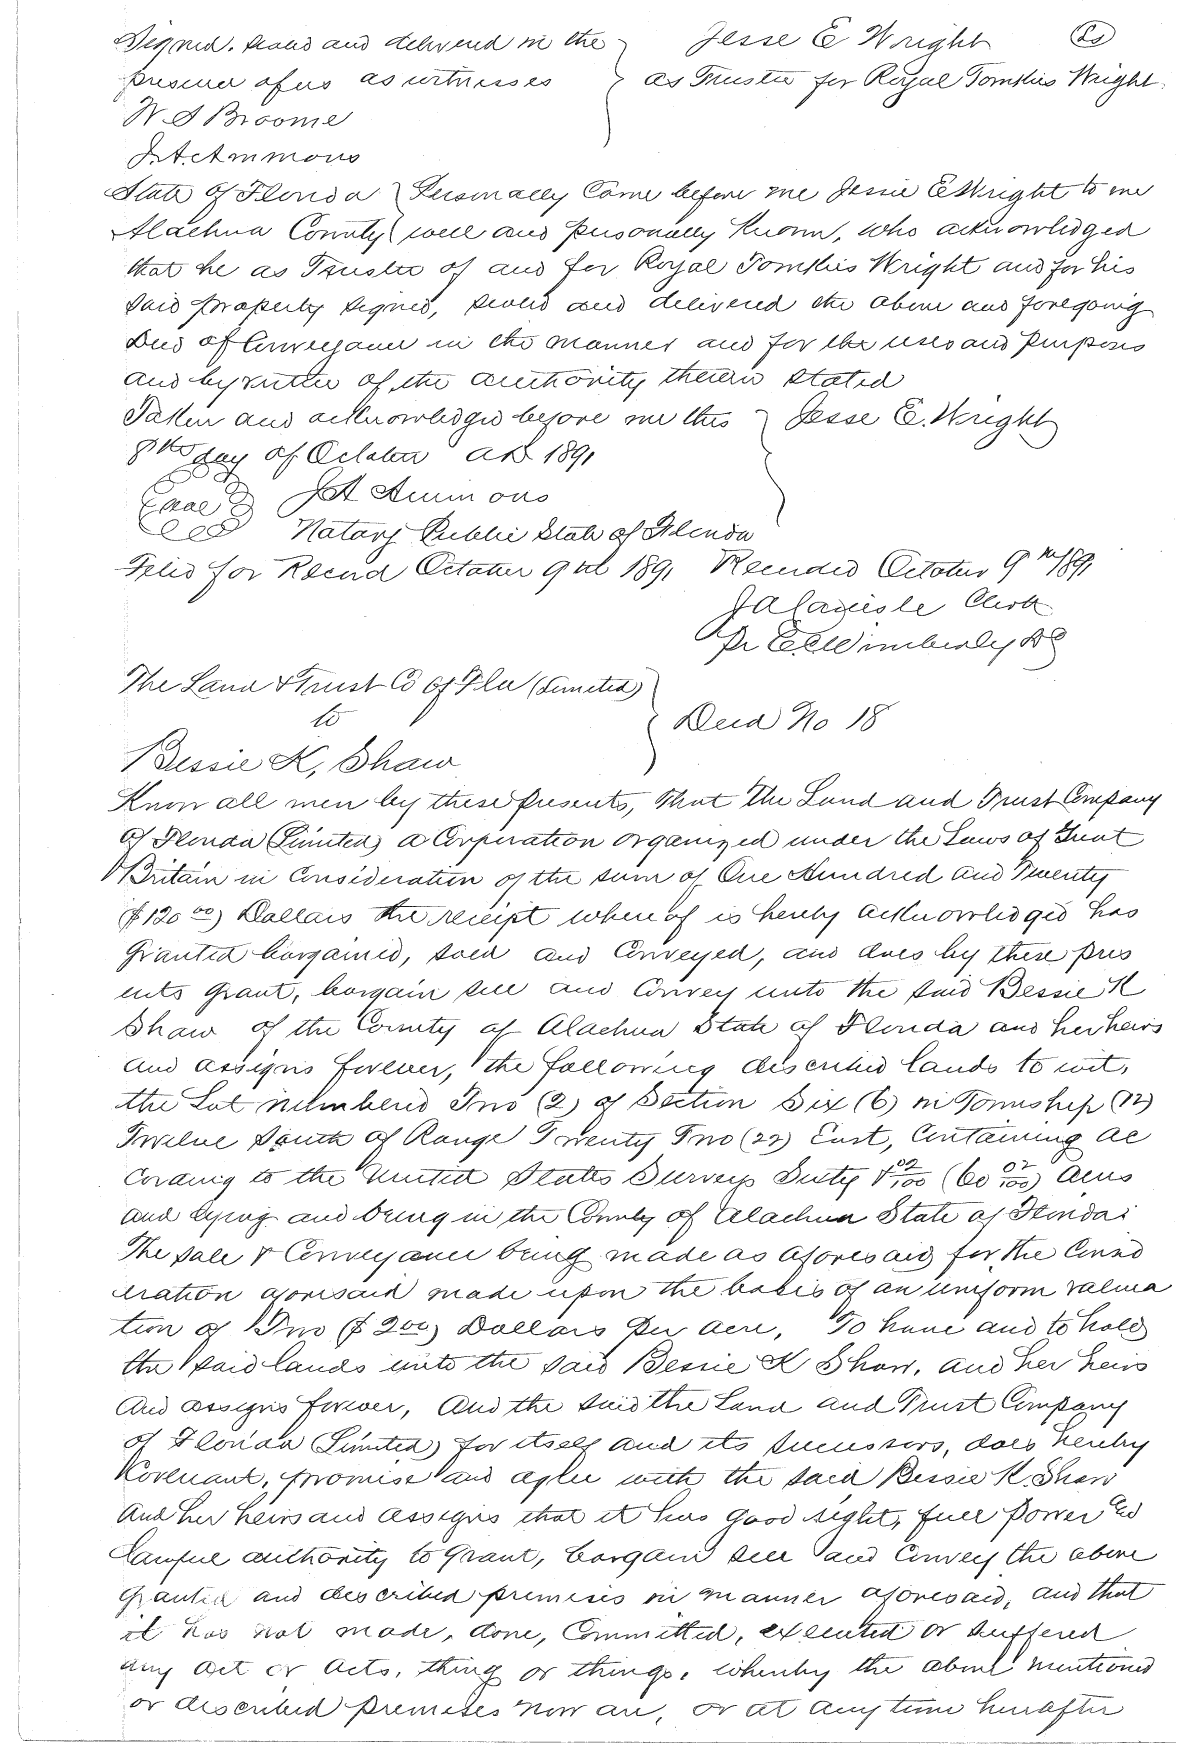 Signed, sealed and delivered in the } Jesse E Wright (Ls)
presence of us as witnesses } as Trustee for Royal Tomkies Wright.
W. S Broome
J. A. Ammons
State of Florida } Personally Came before me Jessie E Wright to me
Alachua County } well and personally Known, who acknowledged
that he as Trustee of and for Royal Tomkies Wright and for his
said property signed, sealed and delivered the above and foregoing
Deed of Conveyance in the manner and for the uses and purposes
and by virtue of the authority therein stated
Taken and acknowledged before me this } Jesse E. Wright
8th day of October AD 1891
Seal J A Ammons
Notary Public State of Florida
Filed for Record October 9th 1891 Recorded October 9th 1891
J A Carlisle Clerk
Pr E C Wimberly DC
The Land & Trust Co of Fla (Limited)
to } Deed No 18
Bessie K, Shaw
Know all men by these presents, that The Land and Trust Company
of Florida (Limited) a Corporation organized under the Laws of Great
Britain in Consideration of the sum of One Hundred and Twenty
($120 00) Dollars the receipt whereof is hereby acknowledged has
Granted bargained, sold and Conveyed, and does by these pres
ents Grant, bargain sell and Convey unto the said Bessie K
Shaw of the County of Alachua State of Florida and her heirs
and assigns forever, the following described lands to wit,
the Lot numbered Two (2) of Section Six (6) in Township (12)
Twelve South of Range Twenty Two (22) East, Containing ac
cording to the United States Survey Sixty & 02/100 (60 02/100) Acres
and lying and being in the County of Alachua State of Florida:
The sale & Conveyance being made as aforesaid for the Consid
eration aforesaid made upon the basis of an uniform valua
tion of Two ($2 00) Dollars per acre, To have and to hold
the said lands unto the said Bessie K Shaw, and her heirs
And assigns forever, And the said the Land and Trust Company
of Florida (Limited) for itself and its successors, does hereby
Kovenant, promise and agree with the said Bessie K. Shaw
And her heirs and assigns that it has good right, full power and
lawful authority to Grant, bargain sell and Convey the above
granted and described premises in manner aforesaid, and that
it has not made, done, Committed, executed or suffered
any act or acts, thing or things, whereby the above mentioned
or described premises now are, or at any time hereafter